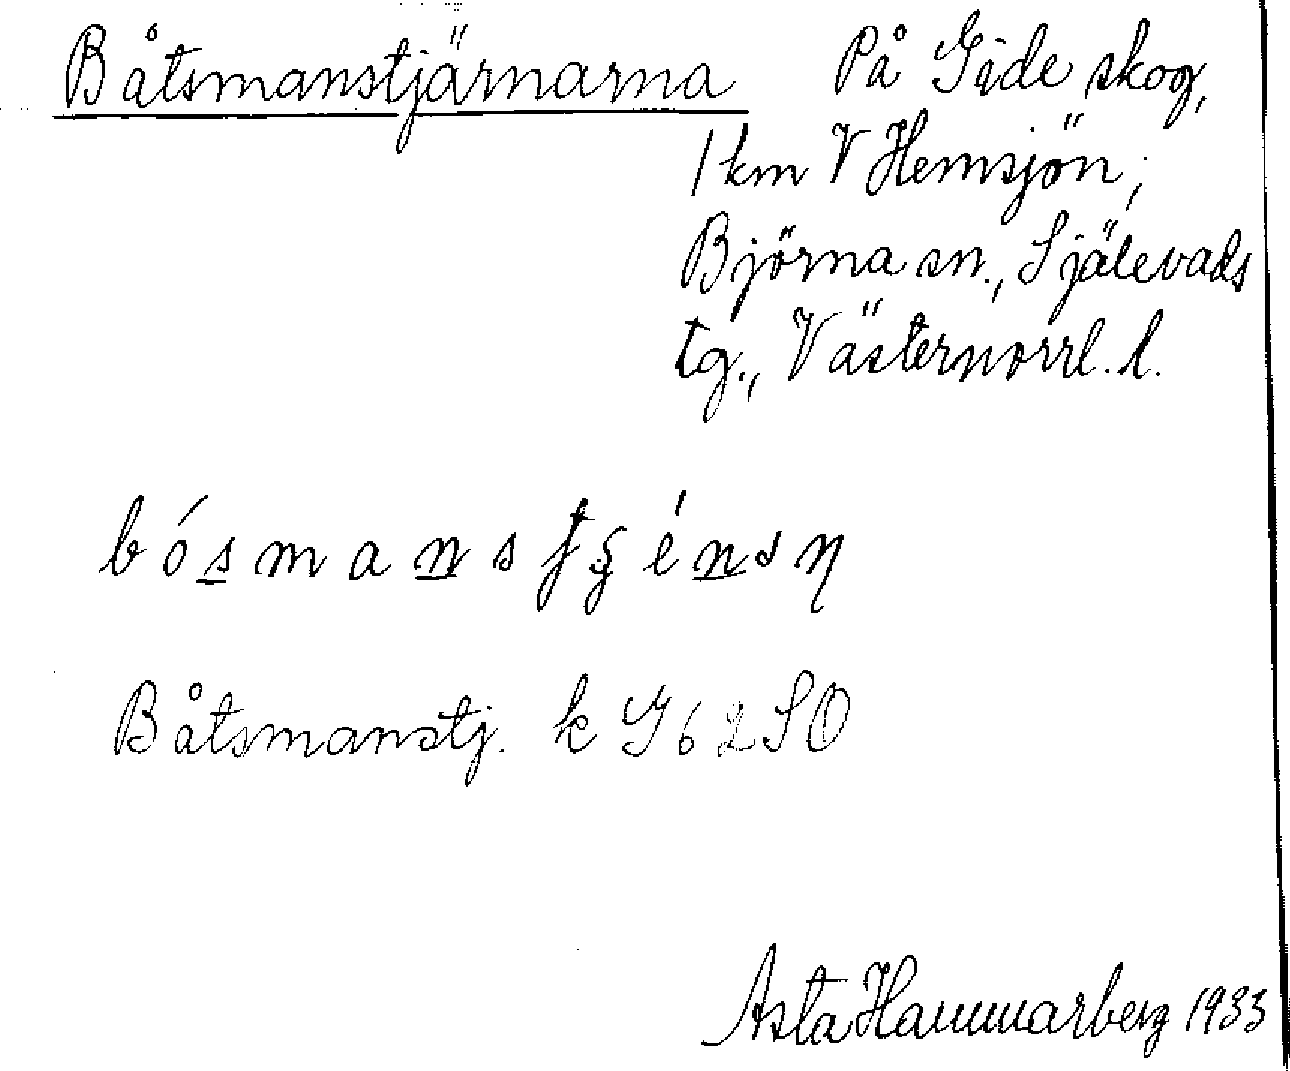 Båtsmanstjärnarna På Gide skog,
1 km V Hemsjön;
Björna sn., Själevads
tg., Västernorrl. l.
Båtsmanstj. k G62SO
Asta Hammarberg 1933